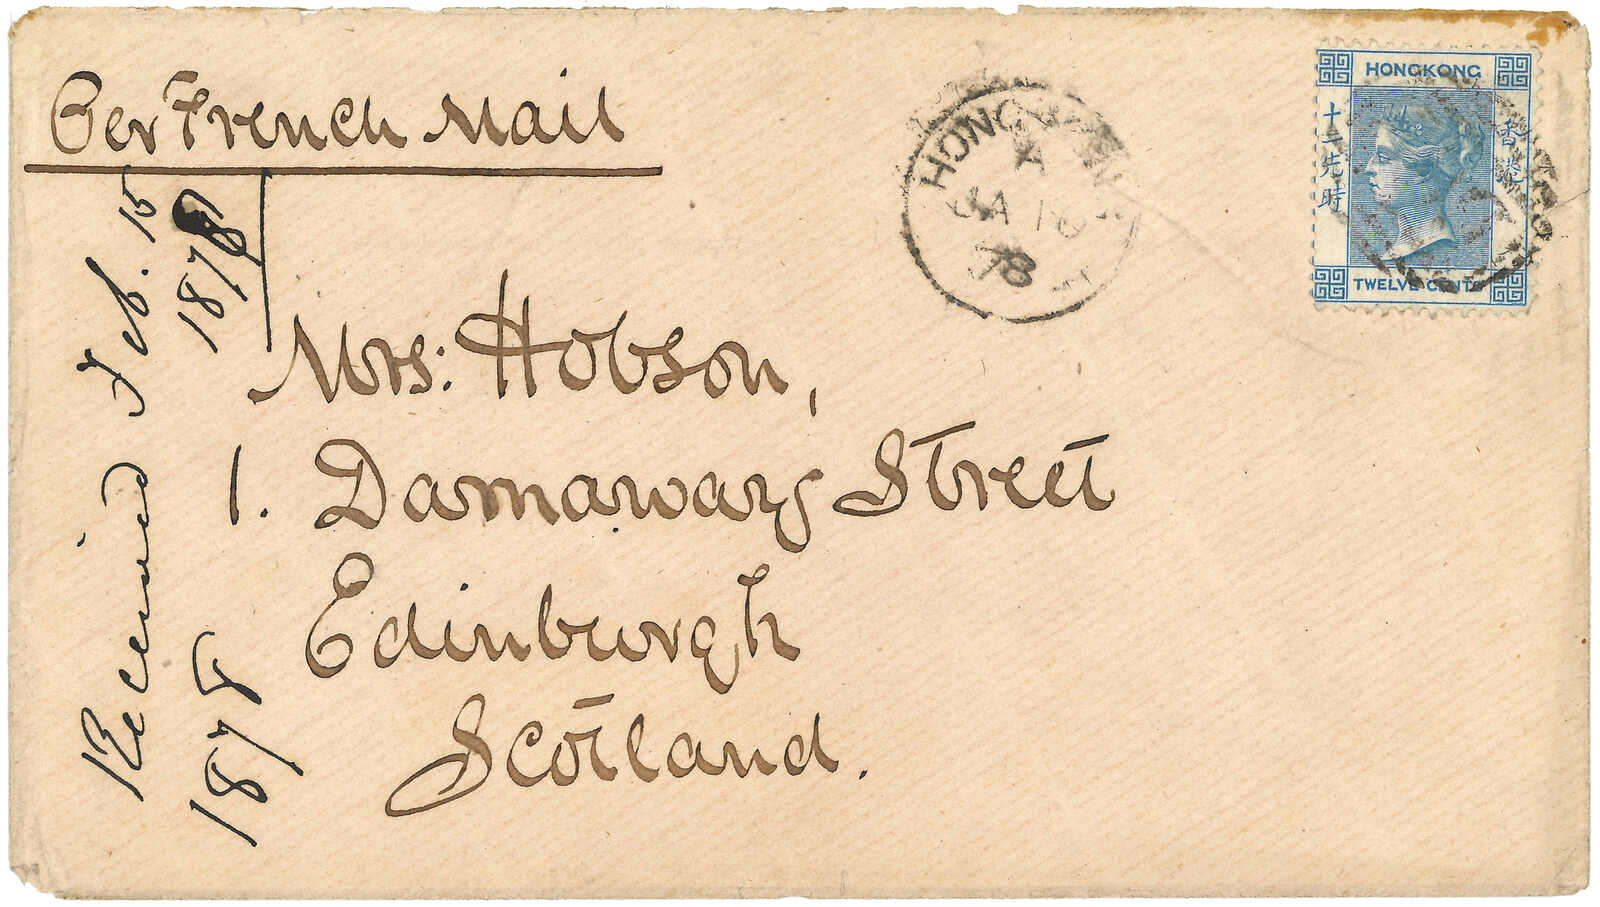 Per French Mail
HONG KONG
A
JA 10
78
HONGKONG
十二先時
香港
TWELVE CENTS
Received Feb. 15
1878
1878
Mrs: Hobson,
1. Darnaway Street
Edinburgh
Scotland.